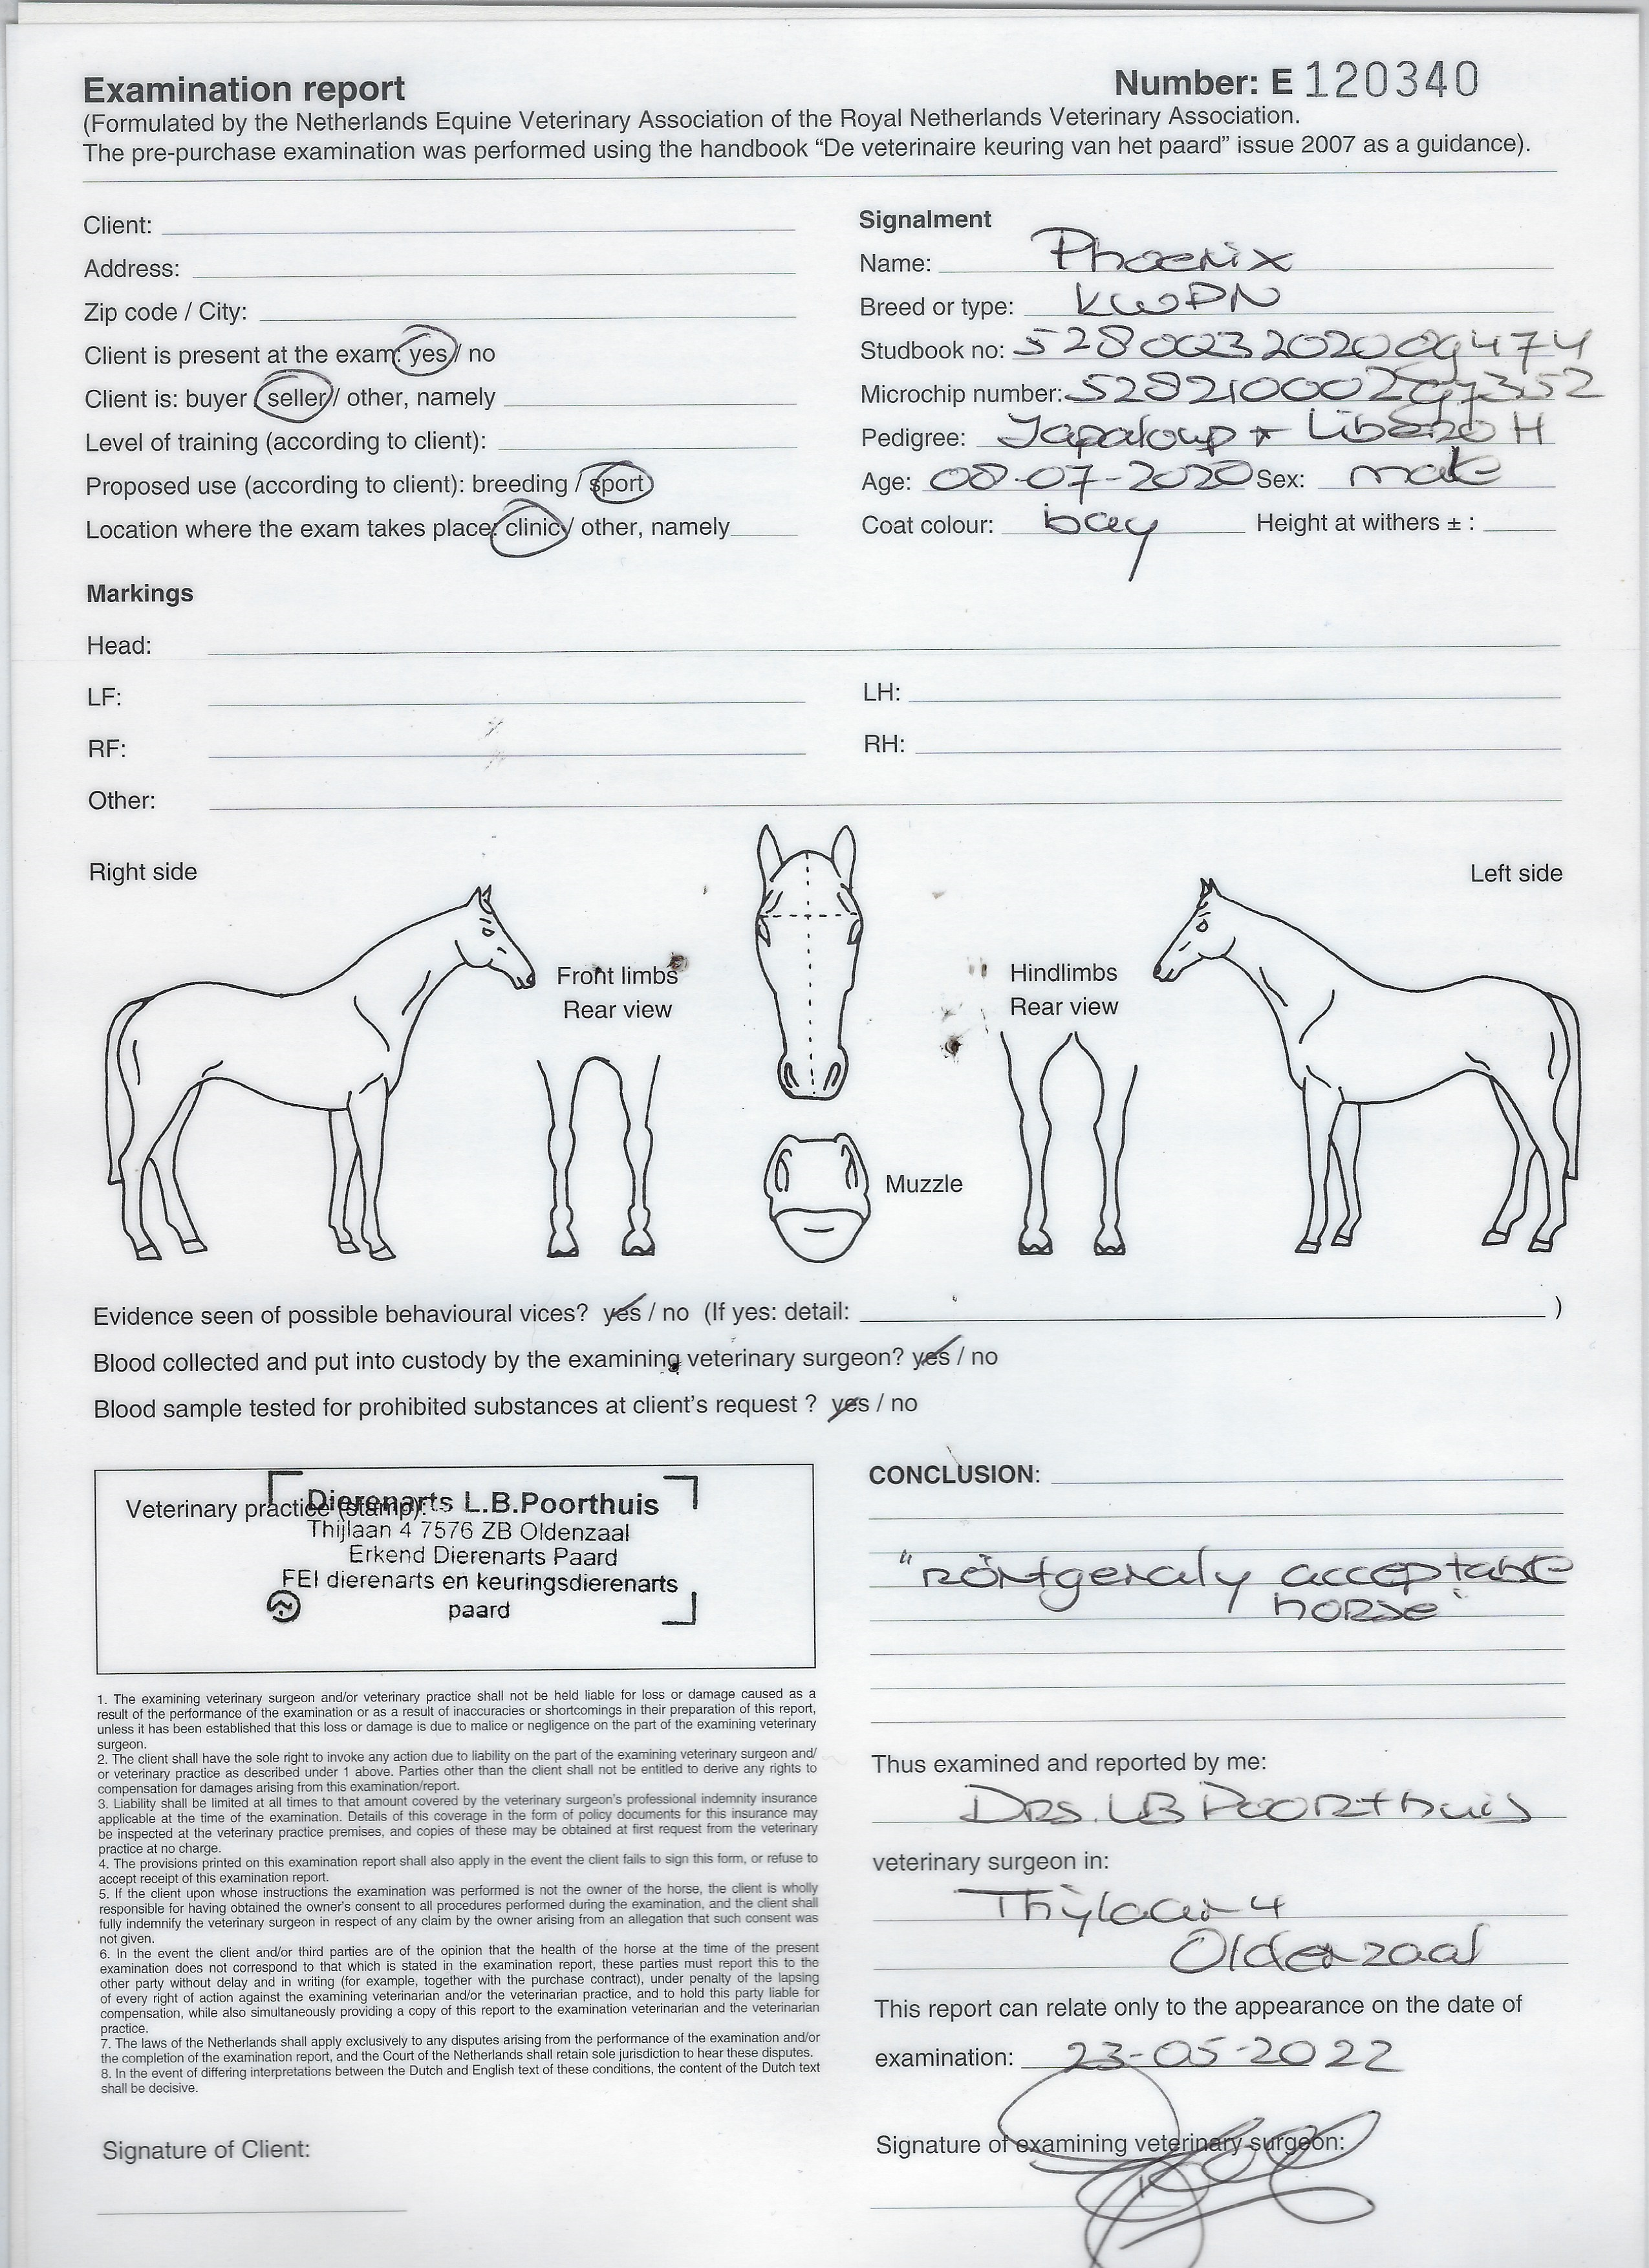 Examination report
Number: E 120340
(Formulated by the Netherlands Equine Veterinary Association of the Royal Netherlands Veterinary Association.
The pre-purchase examination was performed using the handbook “De veterinaire keuring van het paard” issue 2007 as a guidance).
Client:
Address:
Zip code / City:
Client is present at the exam: yes / no
Client is: buyer / seller / other, namely
Level of training (according to client):
Proposed use (according to client): breeding / sport
Location where the exam takes place: clinic / other, namely
Signalment
Name: Phoenix
Breed or type: KWPN
Studbook no: 528003202009474
Microchip number:
Pedigree: Japaloup * Libero H
Age: 08-07-2020 Sex: male
Coat colour: bay Height at withers ± :
Markings
Head:
LF: LH:
RF: RH:
Other:
Right side
Left side
Front limbs
Rear view
Hindlimbs
Rear view
Muzzle
Evidence seen of possible behavioural vices? yes / no (If yes: detail: )
Blood collected and put into custody by the examining veterinary surgeon? yes / no
Blood sample tested for prohibited substances at client’s request ? yes / no
Veterinary practice (stamp):
Dierenarts L.B.Poorthuis
Thijlaan 4 7576 ZB Oldenzaal
Erkend Dierenarts Paard
FEI dierenarts en keuringsdierenarts
paard
1. The examining veterinary surgeon and/or veterinary practice shall not be held liable for loss or damage caused as a
result of the performance of the examination or as a result of inaccuracies or shortcomings in their preparation of this report,
unless it has been established that this loss or damage is due to malice or negligence on the part of the examining veterinary
surgeon.
2. The client shall have the sole right to invoke any action due to liability on the part of the examining veterinary surgeon and/
or veterinary practice as described under 1 above. Parties other than the client shall not be entitled to derive any rights to
compensation for damages arising from this examination/report.
3. Liability shall be limited at all times to that amount covered by the veterinary surgeon’s professional indemnity insurance
applicable at the time of the examination. Details of this coverage in the form of policy documents for this insurance may
be inspected at the veterinary practice premises, and copies of these may be obtained at first request from the veterinary
practice at no charge.
4. The provisions printed on this examination report shall also apply in the event the client fails to sign this form, or refuse to
accept receipt of this examination report.
5. If the client upon whose instructions the examination was performed is not the owner of the horse, the client is wholly
responsible for having obtained the owner’s consent to all procedures performed during the examination, and the client shall
fully indemnify the veterinary surgeon in respect of any claim by the owner arising from an allegation that such consent was
not given.
6. In the event the client and/or third parties are of the opinion that the health of the horse at the time of the present
examination does not correspond to that which is stated in the examination report, these parties must report this to the
other party without delay and in writing (for example, together with the purchase contract), under penalty of the lapsing
of every right of action against the examining veterinarian and/or the veterinarian practice, and to hold this party liable for
compensation, while also simultaneously providing a copy of this report to the examination veterinarian and the veterinarian
practice.
7. The laws of the Netherlands shall apply exclusively to any disputes arising from the performance of the examination and/or
the completion of the examination report, and the Court of the Netherlands shall retain sole jurisdiction to hear these disputes.
8. In the event of differing interpretations between the Dutch and English text of these conditions, the content of the Dutch text
shall be decisive.
Signature of Client:
CONCLUSION:
"röntgenaly acceptable
horse"
Thus examined and reported by me:
Drs. LB Poorthuis
veterinary surgeon in:
Thijlaan 4
Oldenzaal
This report can relate only to the appearance on the date of
examination: 23-05-2022
Signature of examining veterinary surgeon: